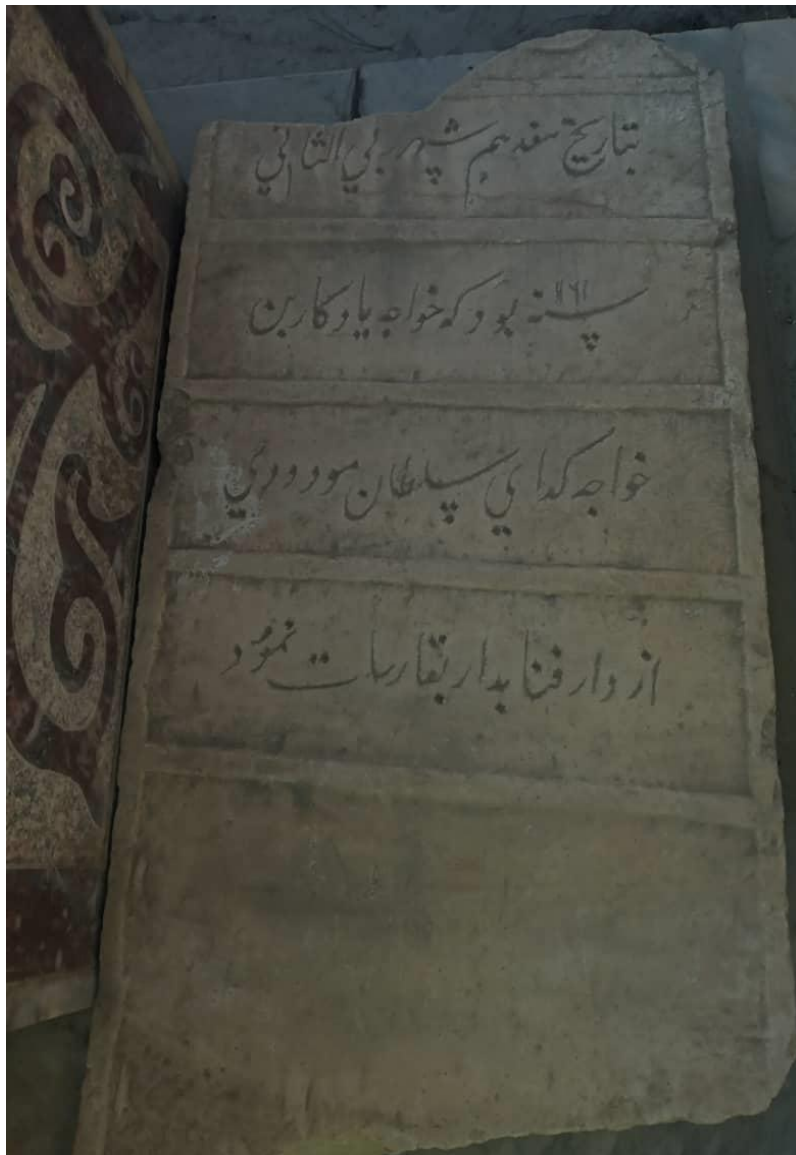 بتاريخ هفدهم شهر بي الثاني
سنه بود که خواجه يادکار بن
خواجه کداي سلطان مودودي
از دار فنا بدار بقا رحلت نمود